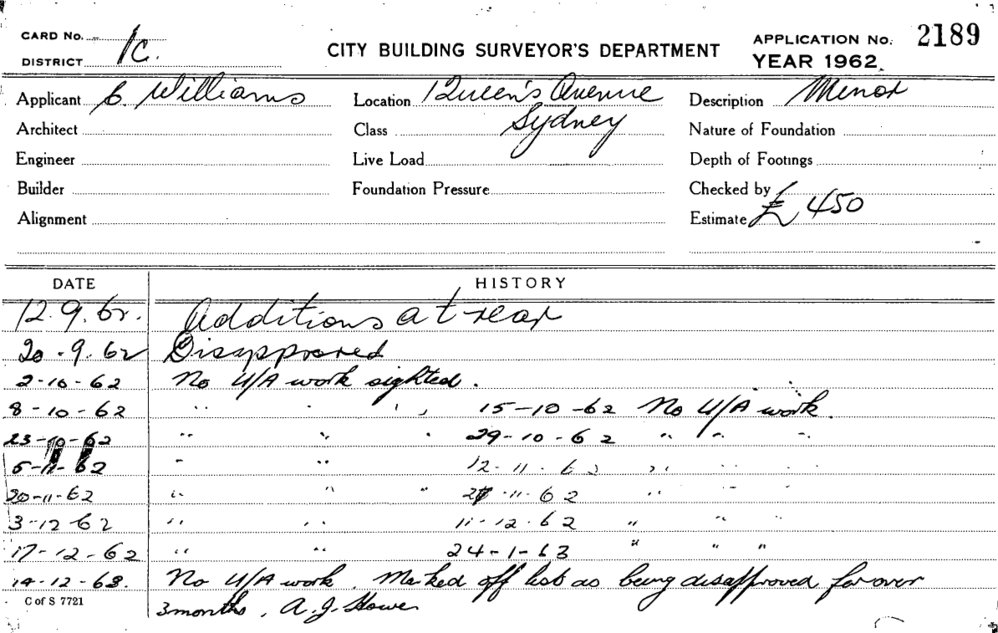 CARD No. 1c.
DISTRICT
CITY BUILDING SURVEYOR'S DEPARTMENT
APPLICATION No. 2189
YEAR 1962
Applicant C. Williams Location 1 Queen's Avenue Description Minor
Architect Class Sydney Nature of Foundation
Engineer Live Load Depth of Footings
Builder Foundation Pressure Checked by
Alignment Estimate £ 450
DATE HISTORY
12.9.62. Additions at rear
20.9.62 Disapproved
2-10-62 No U/A work sighted.
8-10-62 " " " 15-10-62 No U/A work.
23-10-62 " " " 29-10-62 " " "
5-11-62 " " 12-11-62 " " "
20-11-62 " " " 27-11-62 " " "
3-12-62 " " 11-12-62 " " "
17-12-62 " " 24-1-63 " " "
14-12-63. No U/A work. Marked off list as being disapproved for over
C of S 7721
3 months. A.J.